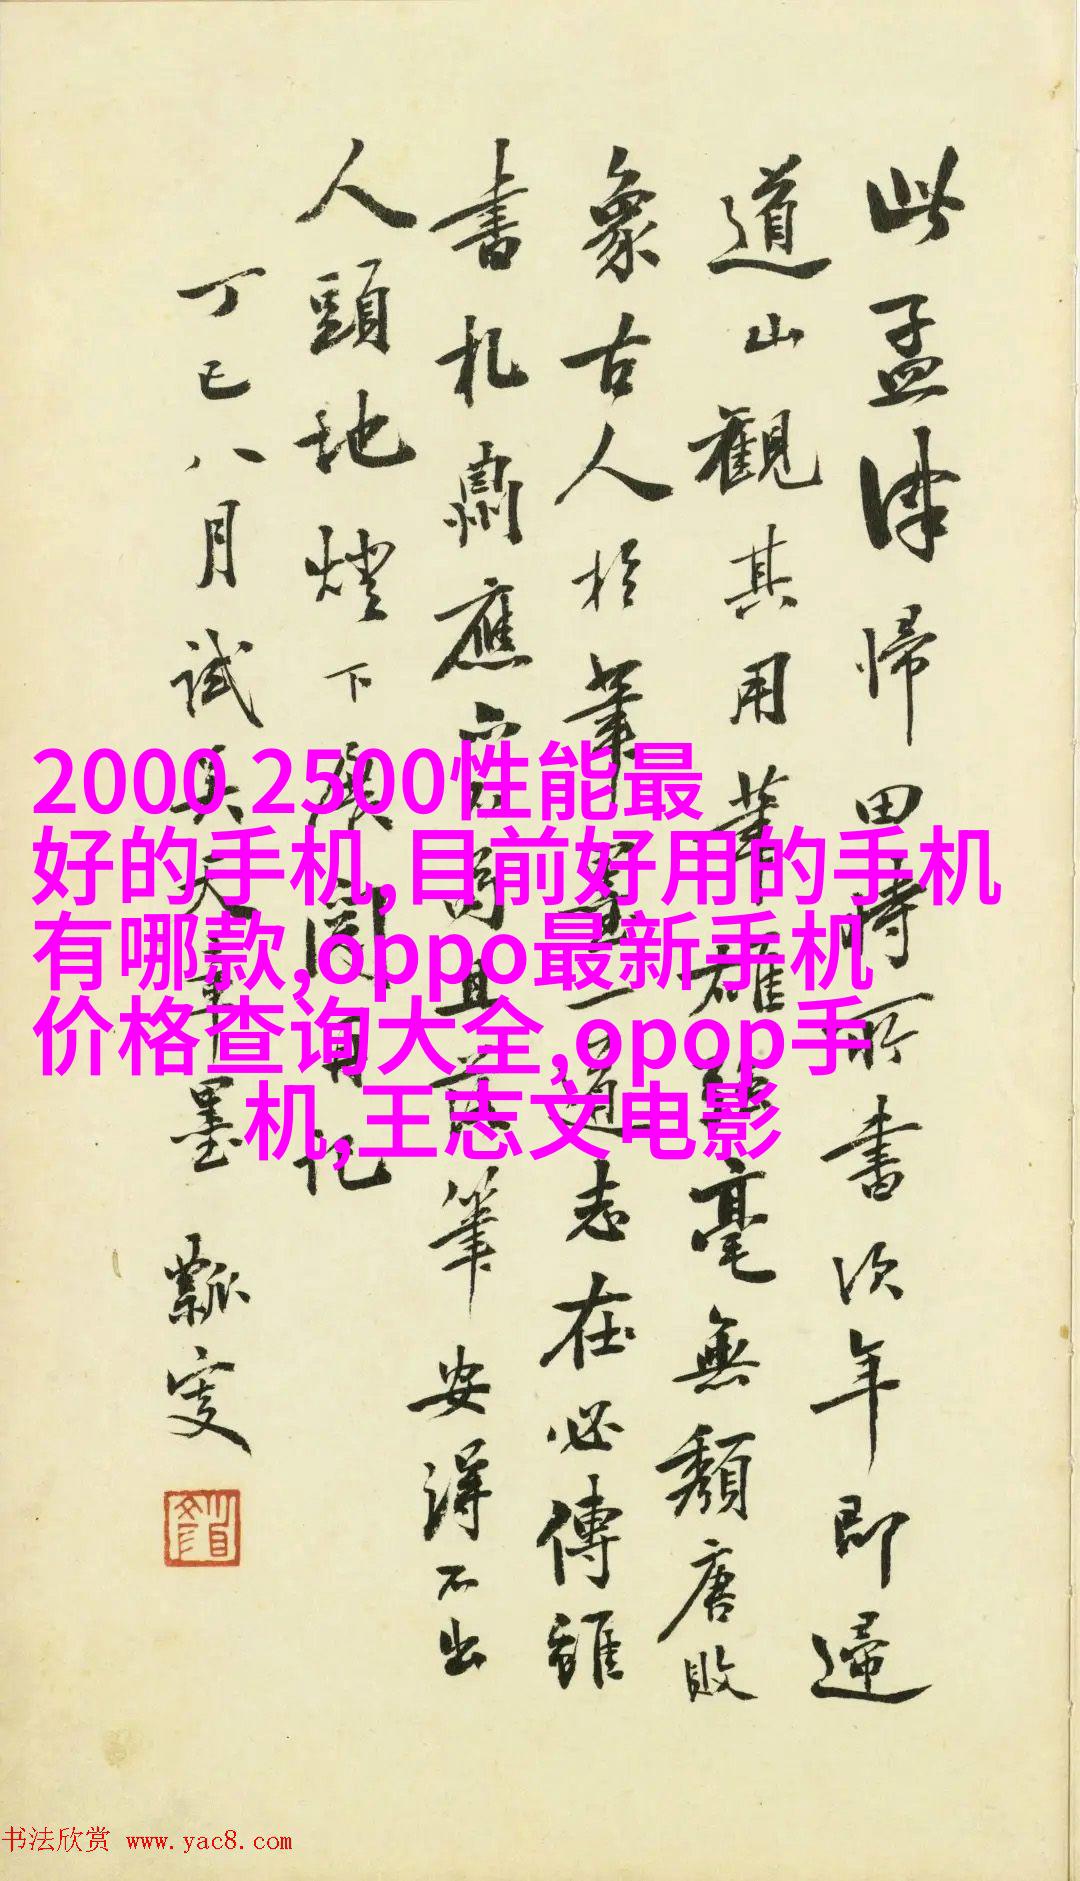 此孟津帰田時所書次年即歸
道山觀其用筆雄強毫無頹唐敗
象古人於筆墨一道志在必傳雖
書札肅應家書且落筆安得不出
人頭地燈下展閱因記
丁巳八月試吳天章墨 瓢叟
2000 2500性能最
好的手机,目前好用的手机
有哪款,oppo最新手机
价格查询大全,opop手
机,王志文电影
书法欣赏 www.yac8.com